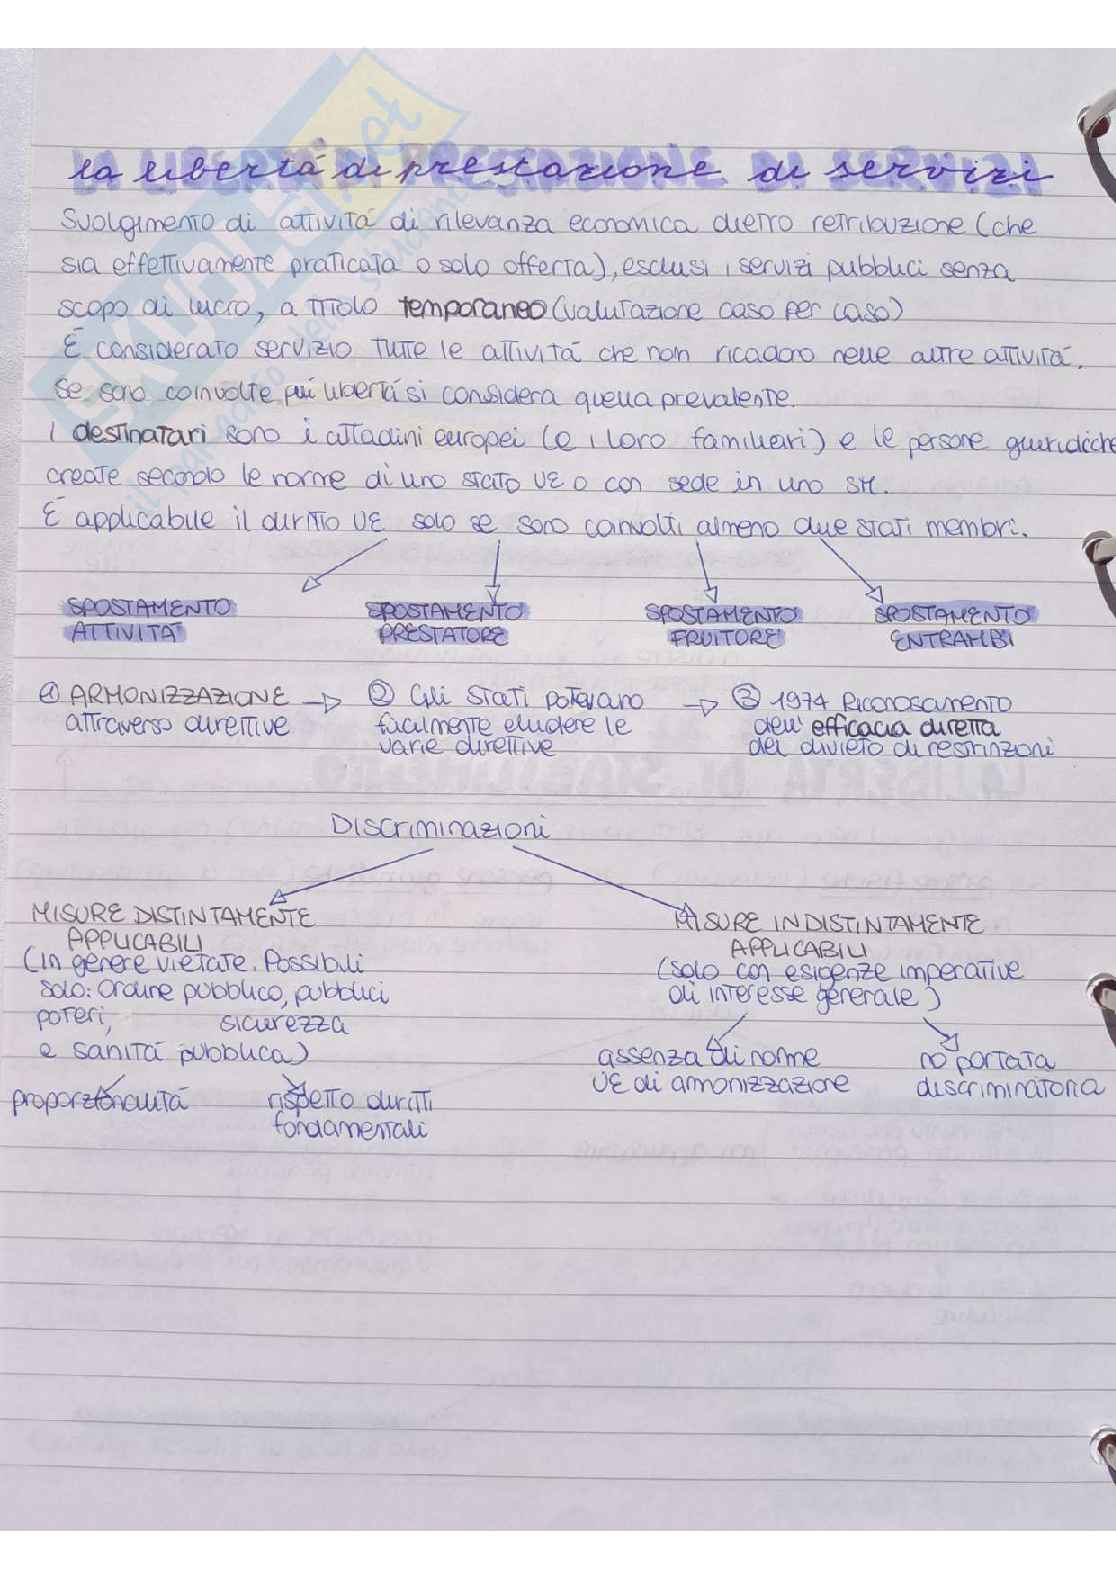 la libertà di prestazione di servizi
Svolgimento di attività di rilevanza economica dietro retribuzione (che
sia effettivamente praticata o solo offerta), esclusi i servizi pubblici senza
scopo di lucro, a titolo temporaneo (valutazione caso per caso)
È considerato servizio tutte le attività che non ricadono nelle altre attività.
Se sono coinvolte più libertà si considera quella prevalente.
I destinatari sono i cittadini europei (e i loro familiari) e le persone giuridiche
create secondo le norme di uno stato UE o con sede in uno SM.
È applicabile il diritto UE solo se sono coinvolti almeno due stati membri.
SPOSTAMENTO SPOSTAMENTO SPOSTAMENTO SPOSTAMENTO
ATTIVITÀ PRESTATORE FRUITORE ENTRAMBI
① ARMONIZZAZIONE → ② Gli stati potevano → ③ 1974 Riconoscimento
attraverso direttive facilmente eludere le dell'efficacia diretta
varie direttive del divieto di restrizioni
Discriminazioni
MISURE DISTINTAMENTE MISURE INDISTINTAMENTE
APPLICABILI APPLICABILI
(in genere vietate. Possibili (solo con esigenze imperative
solo: ordine pubblico, pubblici di interesse generale)
poteri, sicurezza
e sanità pubblica) assenza di norme no portata
UE di armonizzazione discriminatoria
proporzionalità rispetto diritti
fondamentali